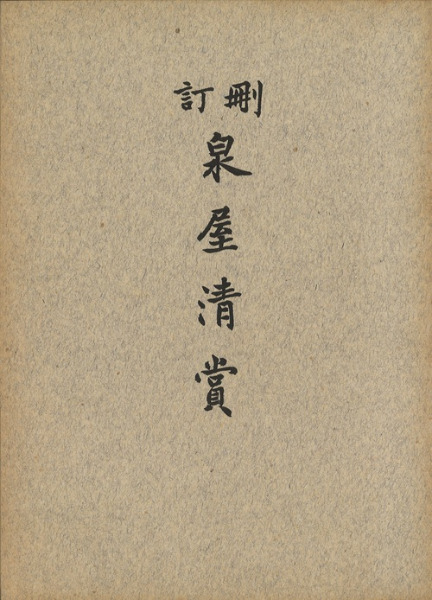 刪訂
泉屋清賞